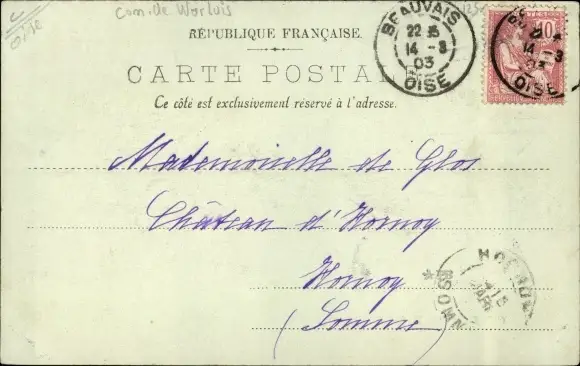 Oise
Com. de Warluis
RÉPUBLIQUE FRANÇAISE.
BEAUVAIS
22 35
14 -3
03
OISE
10
POSTES
14 -3
03
OISE
CARTE POSTA
Ce côté est exclusivement réservé à l'adresse.
Mademoiselle de Glos
Château d'Hornoy
Hornoy
(Somme)
HORNOY
SOMME